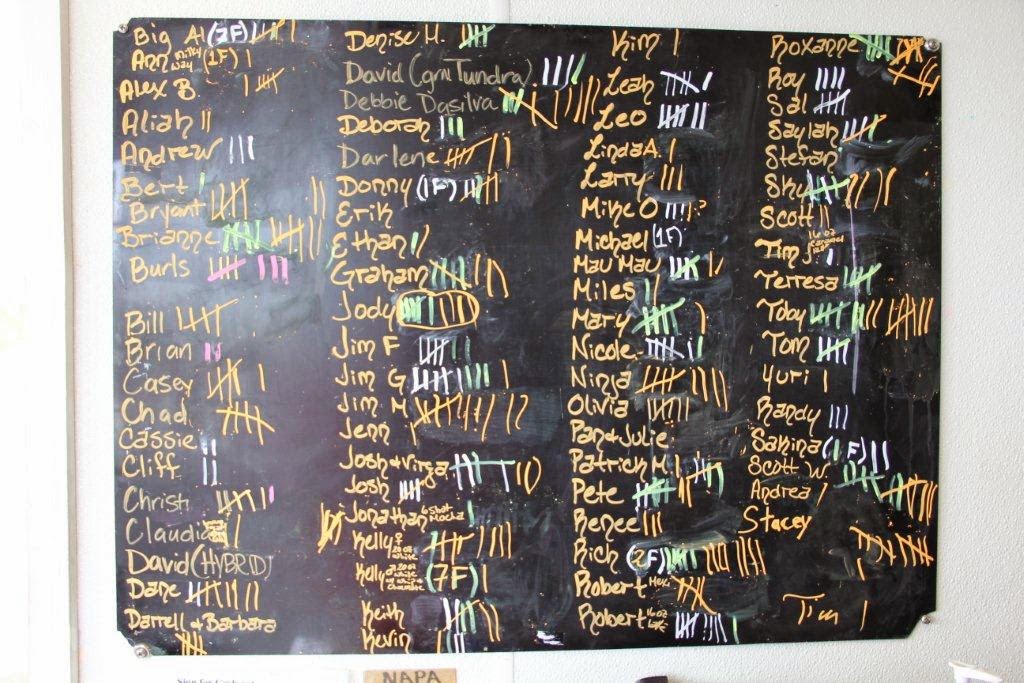 Big Al (7F)
Ann milky way (1F)
Alex B.
Aliah
Andrew
Bert
Bryant
Brianne
Burls
Bill
Brian
Casey
Chad
Cassie
Cliff
Christi
Claudia
David (HYBRID)
Dane
Darrell & Barbara
Denise H.
David (grn Tundra)
Debbie Dasilva
Deborah
Darlene
Donny (1F)
Erik
Ethan
Graham
Jody
Jim F
Jim G
Jim M
Jenn
Josh & Virga
Josh
Jonathan 6 shot Mocha
Kelly ♀ 20oz white
Kelly (7F)
Keith
Kevin
Kim
Leah
Leo
Linda A.
Larry
Mike O
Michael (1F)
Mau Mau
Miles
Mary
Nicole
Ninja
Olivia
Pan & Julie
Patrick M
Pete
Renee
Rich (2F)
Robert
Robert 16oz
Roxanne
Roy
Sal
Saylah
Stefan
Sky
Scott
Tim 16oz
Terresa
Toby
Tom
Yuri
Randy
Sanina (1F)
Scott W.
Andrea
Stacey
Tim
NAPA